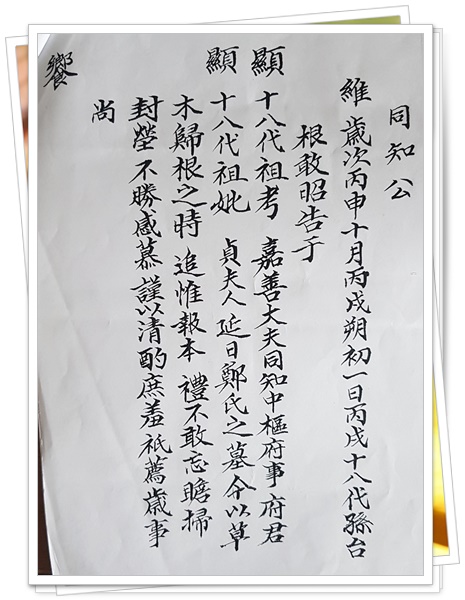 同知公
維 歲次丙申十月丙戌朔初一日丙戌十八代孫台
根敢昭告于
顯 十八代祖考 嘉善大夫同知中樞府事府君
顯 十八代祖妣 貞夫人延日鄭氏之墓今以草
木歸根之時 追惟報本 禮不敢忘瞻掃
封塋不勝感慕 謹以清酌庶羞祇薦歲事
尚
饗